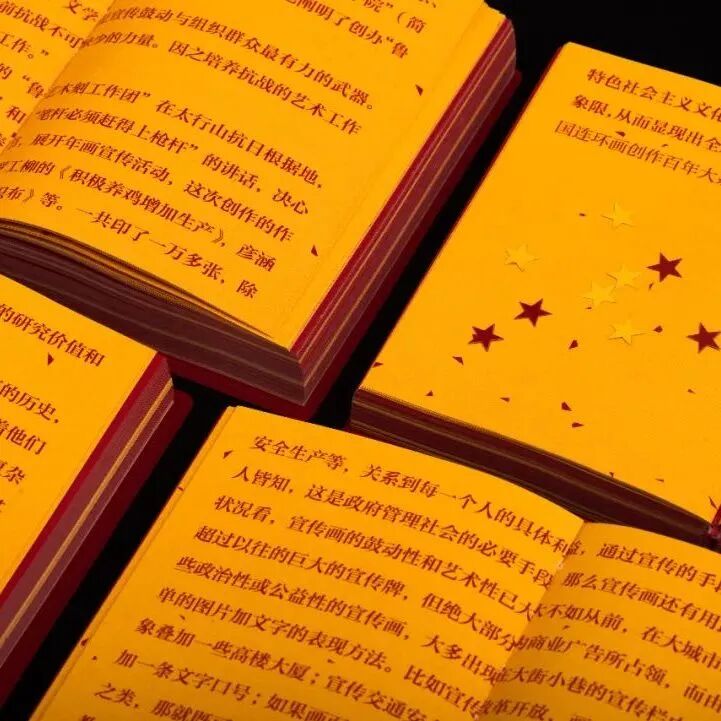 院”（简
阐明了创办“鲁
宣传鼓动与组织群众最有力的武器。
少的力量。 因之培养抗战的艺术工作
前抗战不可
工作。”
的“鲁
木刻工作团”在太行山抗日根据地，
笔杆必须赶得上枪杆”的讲话，决心
展开年画宣传活动，这次创作的作
《积极养鸡增加生产》，彦涵
布》等。一共印了一万多张，除
特色社会主义文化
象限，从而显现出全
国连环画创作百年大
的研究价值和
的历史，
着他们
杂
安全生产等，关系到每一个人的具体和
人皆知，这是政府管理社会的必要手段
状况看，宣传画的鼓动性和艺术性已大
超过以往的巨大的宣传牌，但绝大部分
些政治性或公益性的宣传画，大多出现
单的图片加文字的表现方法。比如宣传
象叠加一些高楼大厦；宣传交通安
加一条文字口号；如果画
之类，那就既
通过宣传的手
那么宣传画还有用
不如从前，在大城市
商业广告所占领，而
在大街小巷的宣传栏
改革开放